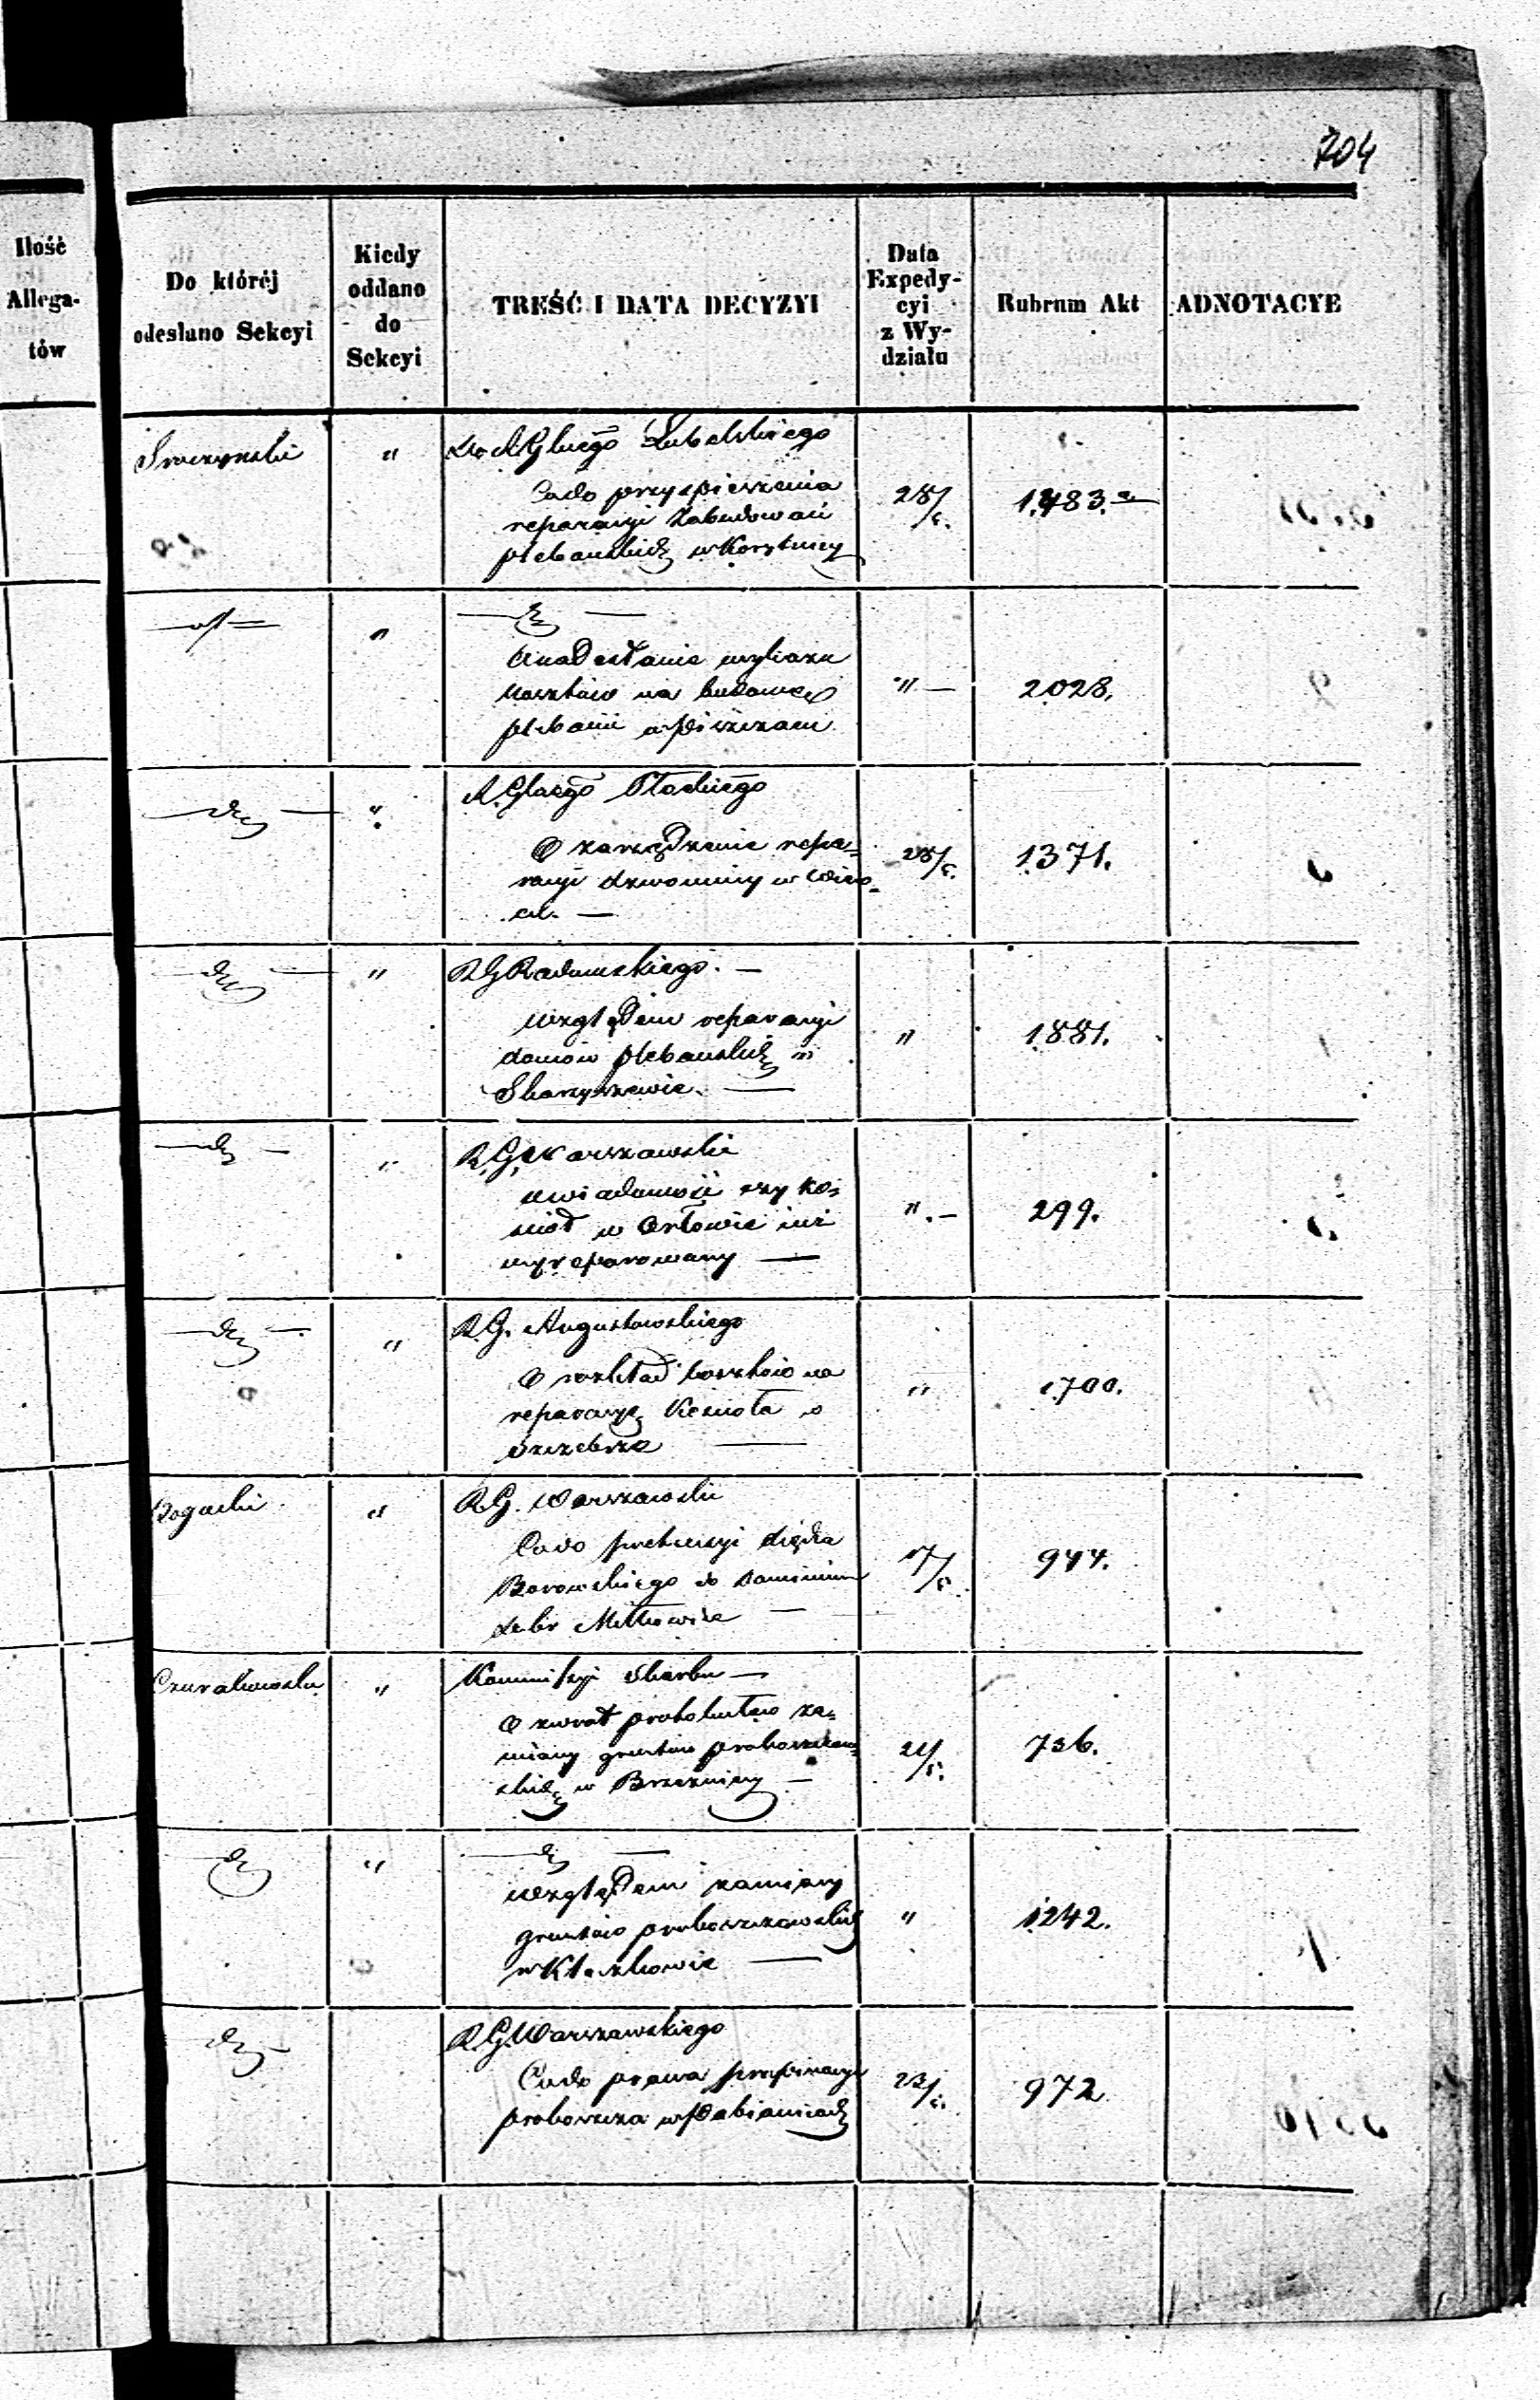 704
Ilość
Allega-
tów
Do któréj
odesłano Sekcyi
Kiedy
oddano
do
Sekcyi
TREŚĆ I DATA DECYZYI
Data
Expedy-
cyi
z Wy-
działu
Rubrum Akt
ADNOTACYE
" Do R Glnego Lubelskiego
Co do przyspieszenia
reparacyi Zabudowań
plebańskich w Korytnicy
28/5.
1483.
"
O nadesłanie wykazu
kosztów na budowę
plebanii w Piszczacu
" —
2028.
" R. Glnego Płockiego
O zarządzenie repa-
racyi dzwonnicy w
28/5.
1371.
" R G Radomskiego. —
Względem reparacyi
domów plebańskich w
Skaryszewie. —
"
1881.
" R. G. Warszawski
uwiadomić czy ko-
ściół w Orłowie już
wyreparowany —
" . —
299.
" R. G. Augustowskiego
O rozkład kosztów na
reparacyę Kościoła w
Szczebrze —
"
1700.
Bogacki " R. G. Warszawski
Co do pretensyi księdza
Borowskiego do dominium
dóbr
17/5
944.
" Kommissyi Skarbu —
O zwrot protokułów za-
miany gruntów proboszczow-
skich w Brzeźnicy —
21/5.
736.
"
Względem zamiany
gruntów proboszczowskich
w Kleszkowie —
"
1242.
R. G. Warszawskiego
Co do prawa propinacyi
proboszcza w Pabianicach
23/5.
972